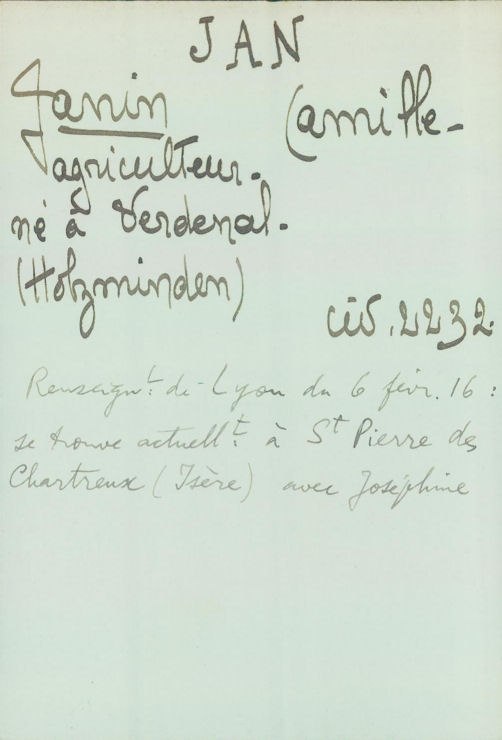 JAN
Janin Camille -
agriculteur.
né à Verdenal.
(Holzminden)
civ. 2232
Renseignt. de Lyon du 6 févr. 16 :
se trouve actuellt. à St Pierre des
Chartreux (Isère) avec Joséphine